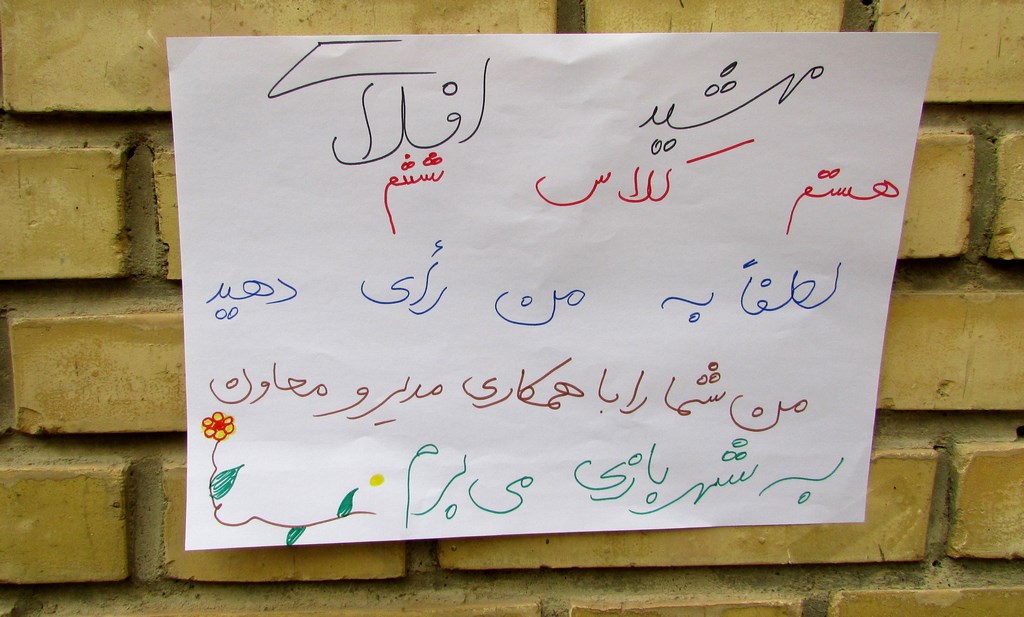 مهشید افلاکی
هستم کلاس ششم
لطفاً به من رأی دهید
من شما را با همکاری مدیر و معاون
به شهربازی می برم